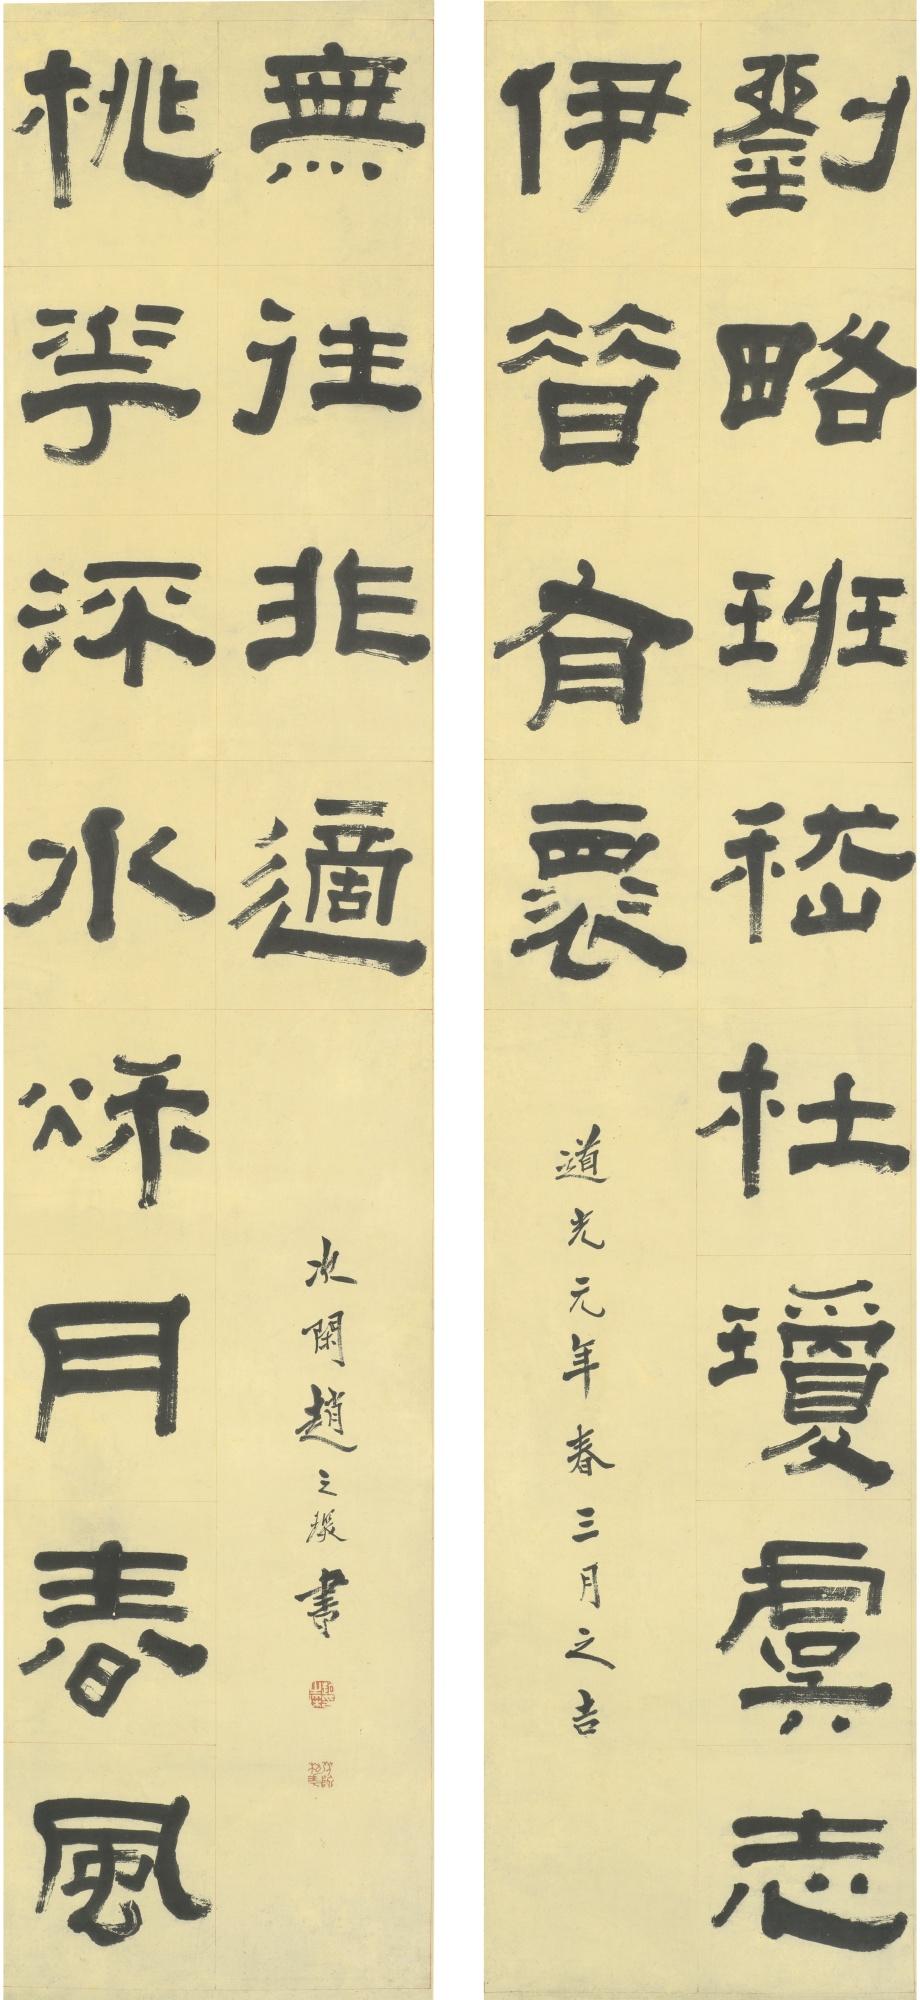 劉略班嵇杜瓊虞志
伊昔有褱
道光元年春三月之吉
桃華深水秌月春風
無往非適
次閑趙之琛書